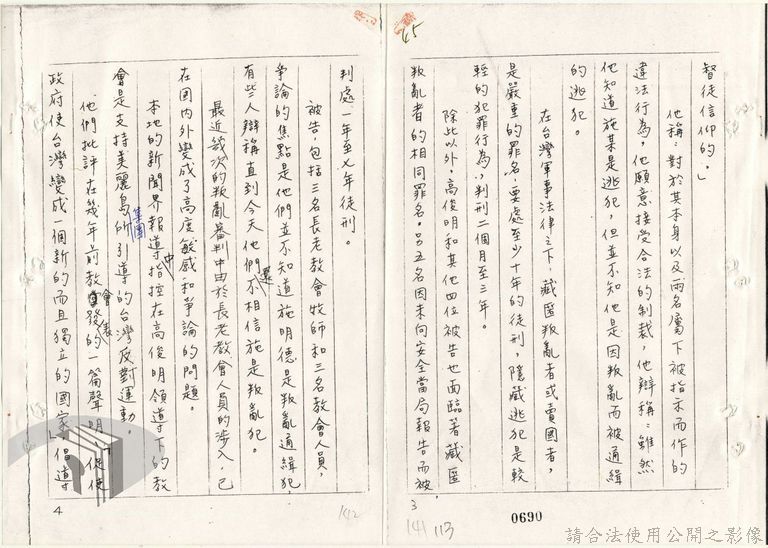 督徒信仰的。」
他稱:對於其本身以及兩名屬下被指示而作的
違法行為,他願意接受合法的制裁,他辯稱:雖然
他知道施某是逃犯,但並不知他是因叛亂而被通緝
的逃犯。
在台灣軍事法律之下,藏匿叛亂者或賣國者,
是嚴重的罪名,要處至少十年的徒刑,隱藏逃犯是較
輕的犯罪行為,判刑二個月至三年。
除此以外,高俊明和其他四位被告也面臨著藏匿
叛亂者的相同罪名。另五名因未向安全當局報告而被
3
141
113
0690
判處一年至七年徒刑。
被告,包括三名長老教會牧師和三名教會人員,
爭論的焦點是他們並不知道施明德是叛亂通緝犯,
有些人辯稱直到今天他們還不相信施是叛亂犯。
最近幾次的叛亂審判中由於長老教會人員的涉入,已
在國內外變成了高度敏感和爭論的問題。
本地的新聞界報導中指控在高俊明領導下的教
會是支持美麗島集團所引導的台灣反對運動。
他們批評在幾年前教會發表的一篇聲明「促使
政府使台灣變成一個新的而且獨立的國家」倡導
4
142
請合法使用公開之影像